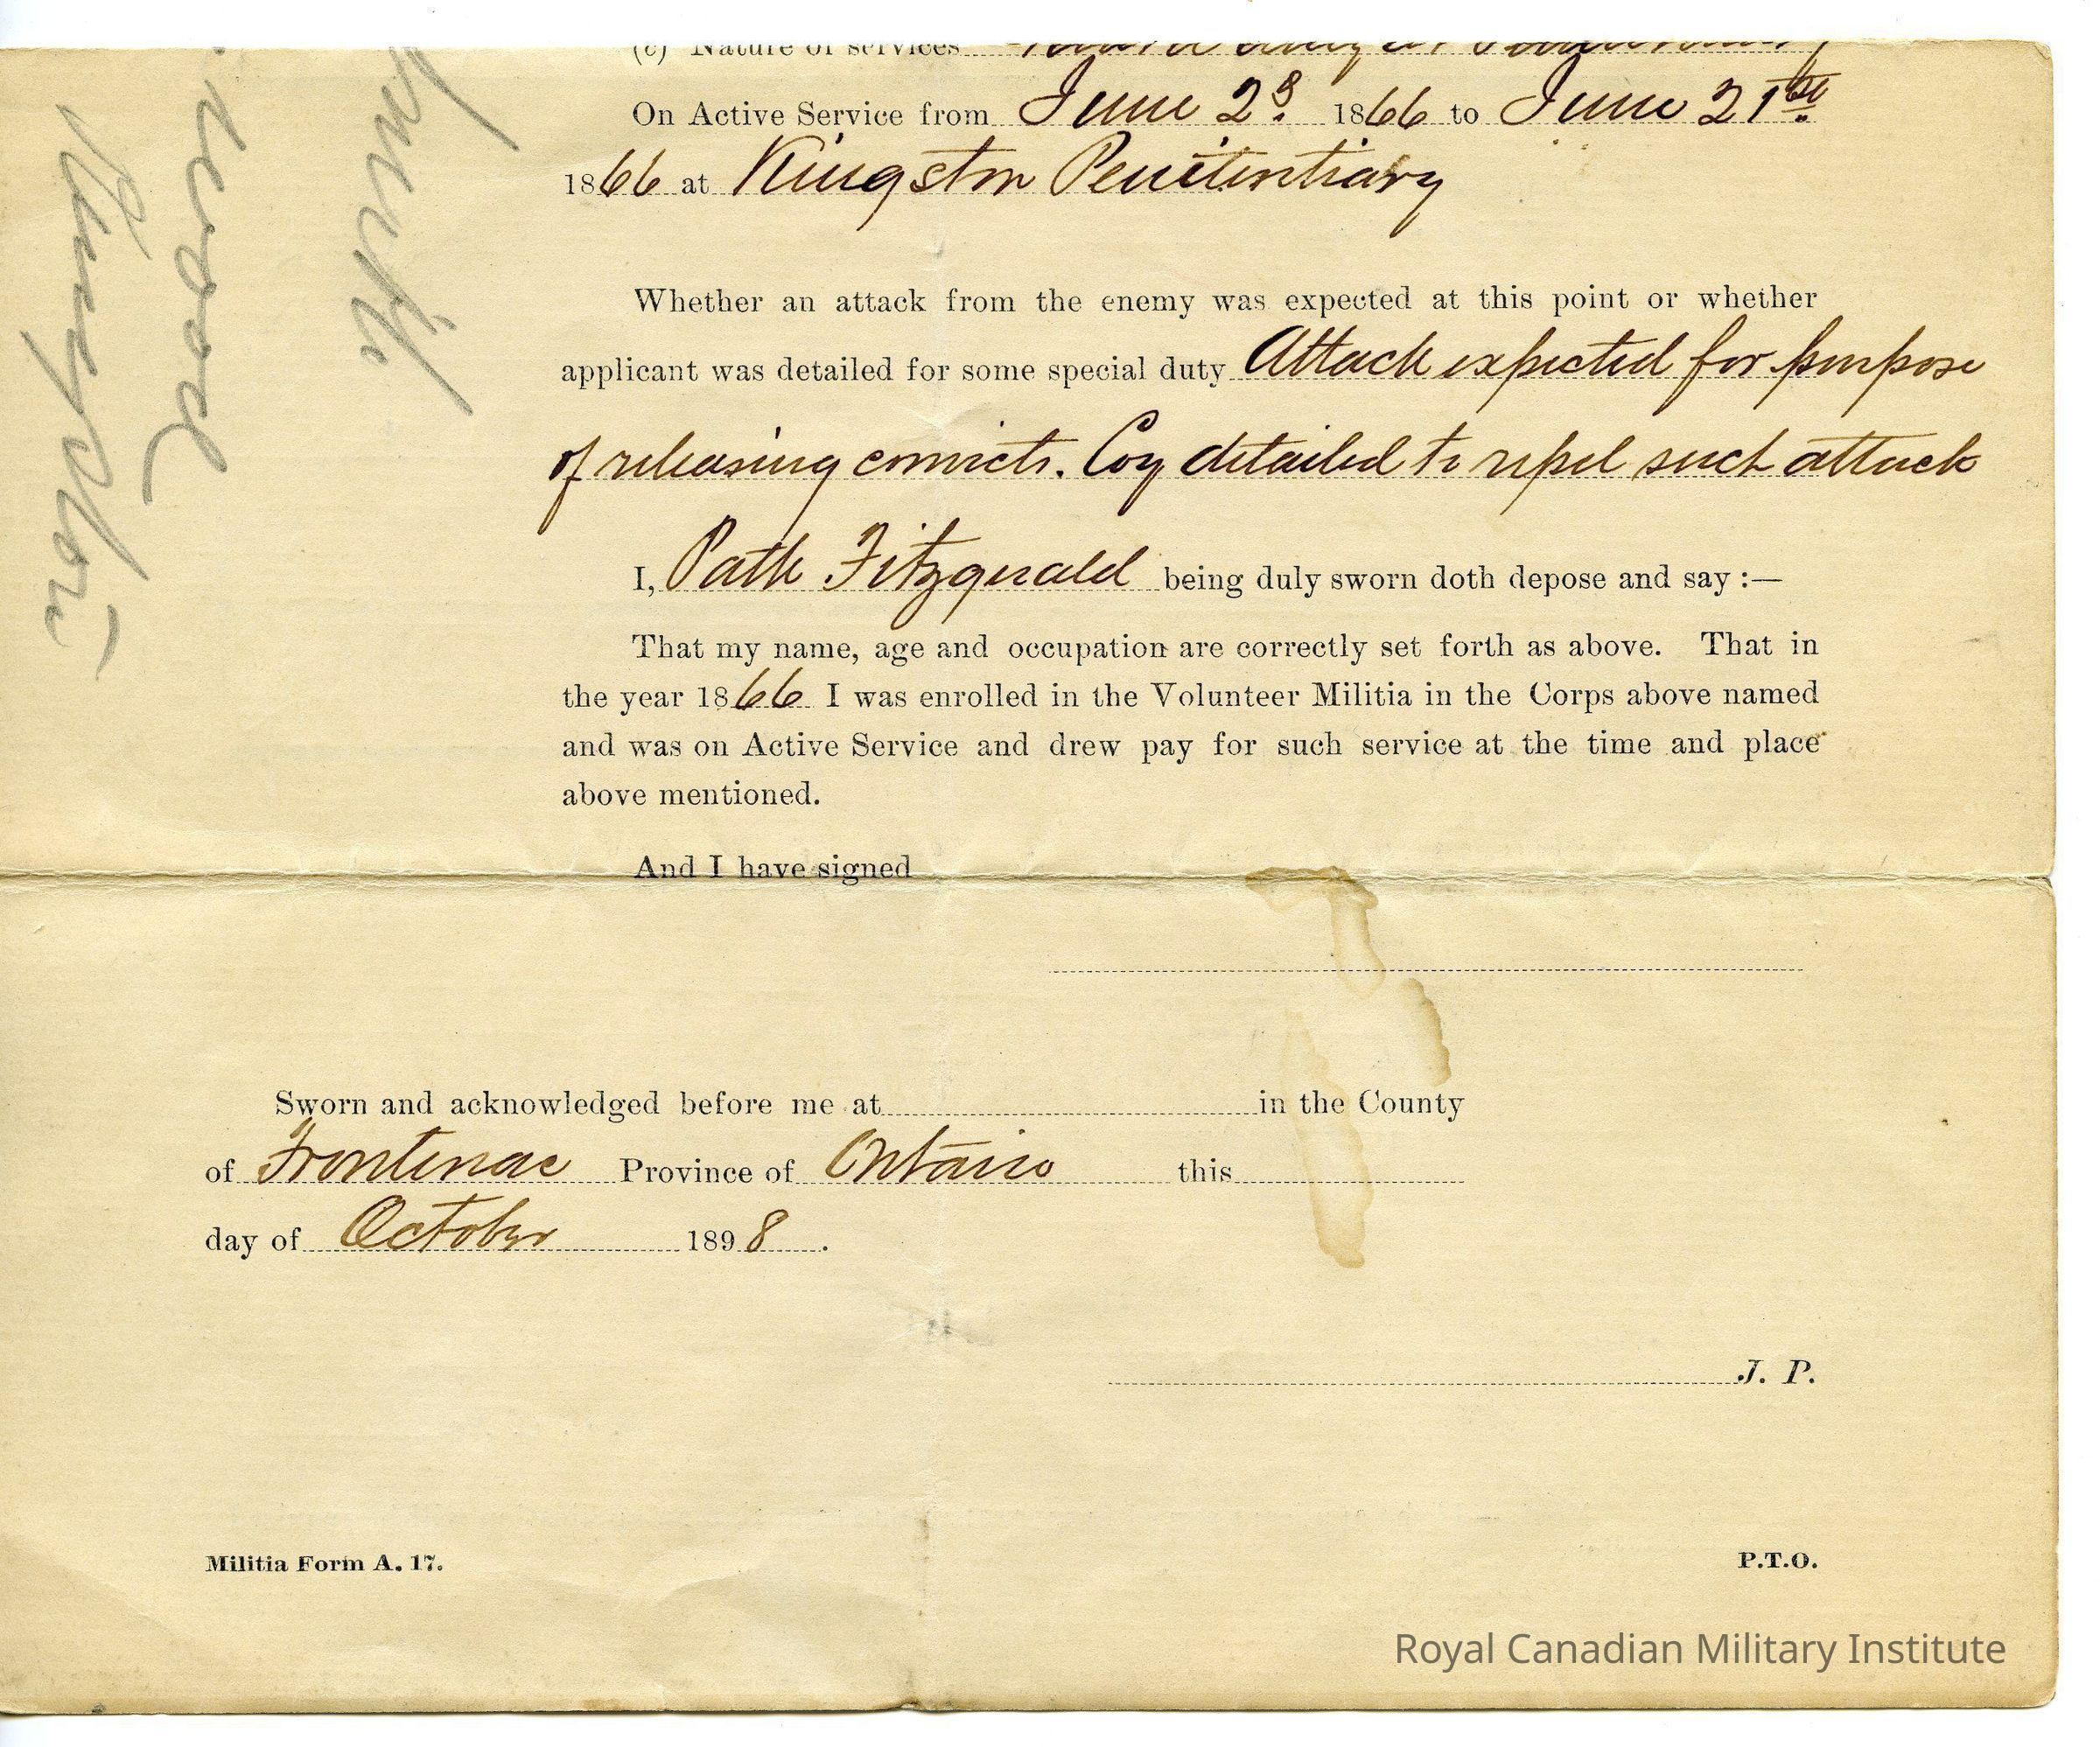 (c) Nature of services
On Active Service from June 2d 1866 to June 21st
1866 at Kingston Penitentiary
Whether an attack from the enemy was expected at this point or whether
applicant was detailed for some special duty Attack expected for purpose
of releasing convicts. Coy detailed to repel such attack
I, Patk Fitzgerald being duly sworn doth depose and say :—
That my name, age and occupation are correctly set forth as above. That in
the year 1866 I was enrolled in the Volunteer Militia in the Corps above named
and was on Active Service and drew pay for such service at the time and place
above mentioned.
And I have signed
Sworn and acknowledged before me at in the County
of Frontenac Province of Ontario this
day of October 1898.
J. P.
Militia Form A. 17.
P.T.O.
Royal Canadian Military Institute